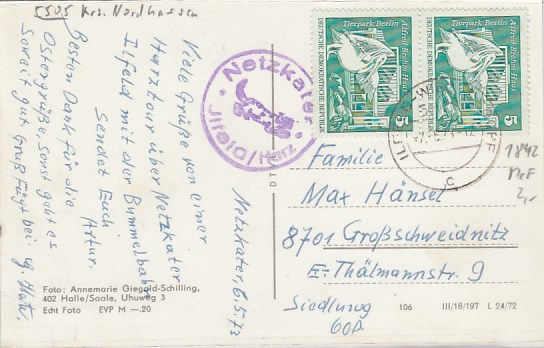 5505 Krs. Nordhausen
Viele Grüße von einer
Harztour über Netzkater
Ilfeld mit der Bummelbahn
sendet Euch
Artur.
Besten Dank für die
Ostergrüße, sonst geht es
soweit gut. Gruß
Netzkater, 6.5.73
Netzkater
Jlfeld/Harz
Tierpark Berlin
Alfred-Brehm-Haus
DEUTSCHE DEMOKRATISCHE REPUBLIK
5
Tierpark Berlin
Alfred-Brehm-Haus
DEUTSCHE DEMOKRATISCHE REPUBLIK
5
1842
MeF
2,-
Familie
Max Hänsel
8701 Großschweidnitz
E-Thälmannstr. 9
Siedlung
60A
Foto: Annemarie Giegold-Schilling,
402 Halle/Saale, Uhuweg 3
Echt Foto EVP M —.20
106 III/18/197 L 24/72